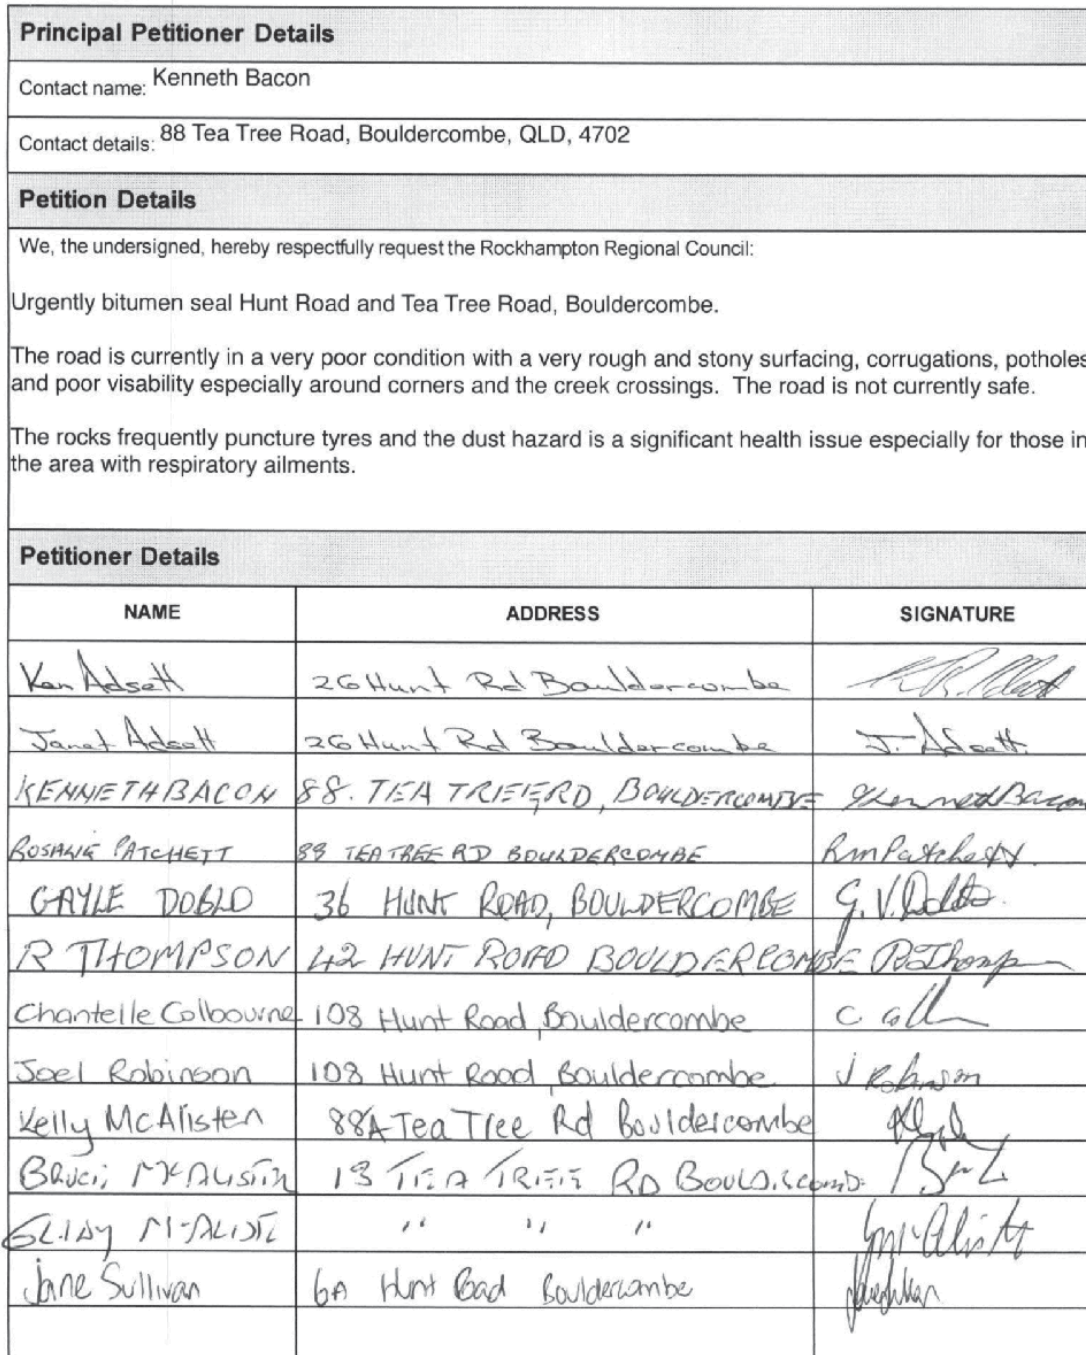 Principal Petitioner Details
Contact name: Kenneth Bacon
Contact details: 88 Tea Tree Road, Bouldercombe, QLD, 4702
Petition Details
We, the undersigned, hereby respectfully request the Rockhampton Regional Council:
Urgently bitumen seal Hunt Road and Tea Tree Road, Bouldercombe.
The road is currently in a very poor condition with a very rough and stony surfacing, corrugations, potholes
and poor visability especially around corners and the creek crossings. The road is not currently safe.
The rocks frequently puncture tyres and the dust hazard is a significant health issue especially for those in
the area with respiratory ailments.
Petitioner Details
NAME ADDRESS SIGNATURE
Ken Adsett 26 Hunt Rd Bouldercombe
Janet Adsett 26 Hunt Rd Bouldercombe J. Adsett
KENNETH BACON 88. TEA TREE RD, BOULDERCOMBE Kenneth Bacon
ROSALIE PATCHETT 88 TEA TREE RD BOULDERCOMBE RmPatchett
GAYLE DOBLO 36 HUNT ROAD, BOULDERCOMBE G.V.
R THOMPSON 42 HUNT ROAD BOULDERCOMBE
Chantelle Colbourne 108 Hunt Road, Bouldercombe C
Joel Robinson 108 Hunt Road, Bouldercombe J Robinson
Kelly McAlister 88A Tea Tree Rd Bouldercombe
13 TEA TREE RD
" " "
Jane Sullivan 6A Hunt Road Bouldercombe